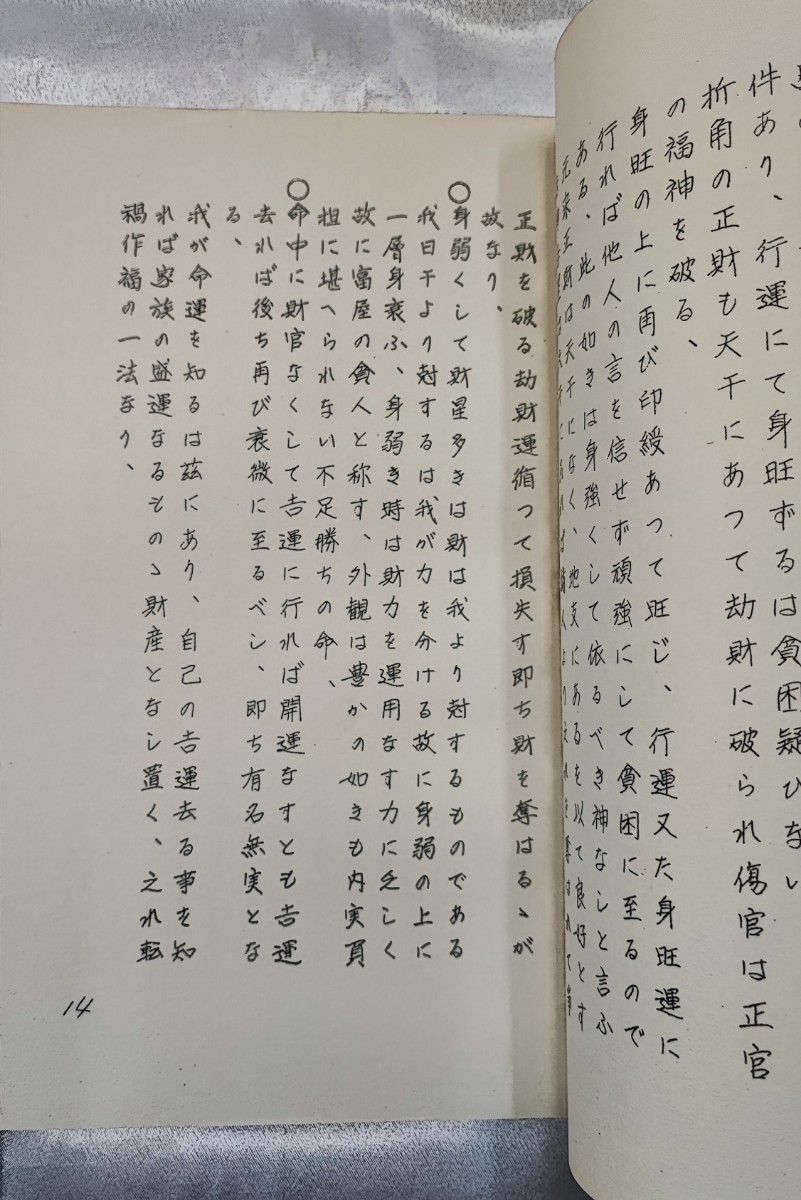 件あり、行運にて身旺ずるは貧困疑ひない
折角の正財も天干にあつて劫財に破られ傷官は正官
の福神を破る、
身旺の上に再び印綬あつて旺じ、行運又た身旺運に
行れば他人の言を信せず頑強にして貧困に至るので
ある、此の如きは身強くして依るべき神なしと言ふ
元来正財は天干になく、地支にあるを以て良好とす
正財を破る劫財運循つて損失す即ち財を奪はるゝが
故なり、
○身弱くして財星多きは財は我より尅するものである
我日干より尅するは我が力を分ける故に身弱の上に
一層身衰ふ、身弱き時は財力を運用なす力に乏しく
故に富屋の貧人と称す、外観は豊かの如きも内実負
担に堪へられない不足勝ちの命、
○命中に財官なくして吉運に行れば開運なすとも吉運
去れば後ち再び衰微に至るべし、即ち有名無実とな
る、
我が命運を知るは茲にあり、自己の吉運去る事を知
れば家族の盛運なるものゝ財産となし置く、之れ転
禍作福の一法なり、
14